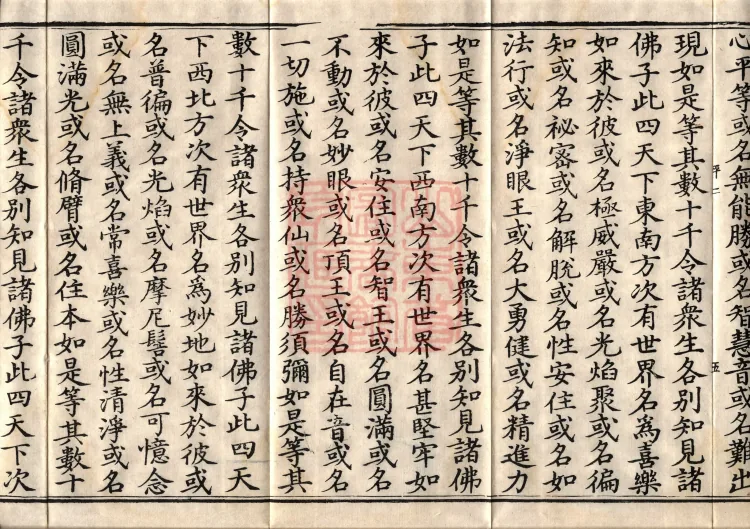 心平等或名無能勝或名智慧音或名難出
現如是等其數十千令諸衆生各別知見諸
佛子此四天下東南方次有世界名為喜樂
如來於彼或名極威嚴或名光焰聚或名徧
知或名祕宻或名解脫或名性安住或名如
法行或名淨眼王或名大勇健或名精進力
如是等其數十千令諸衆生各別知見諸佛
子此四天下西南方次有世界名甚堅牢如
來於彼或名安住或名智王或名圓滿或名
不動或名妙眼或名頂王或名自在音或名
一切施或名持衆仙或名勝須彌如是等其
數十千令諸衆生各別知見諸佛子此四天
下西北方次有世界名為妙地如來於彼或
名普徧或名光焰或名摩尼髻或名可憶念
或名無上義或名常喜樂或名性清淨或名
圓滿光或名脩臂或名住本如是等其數十
千令諸衆生各別知見諸佛子此四天下次
五